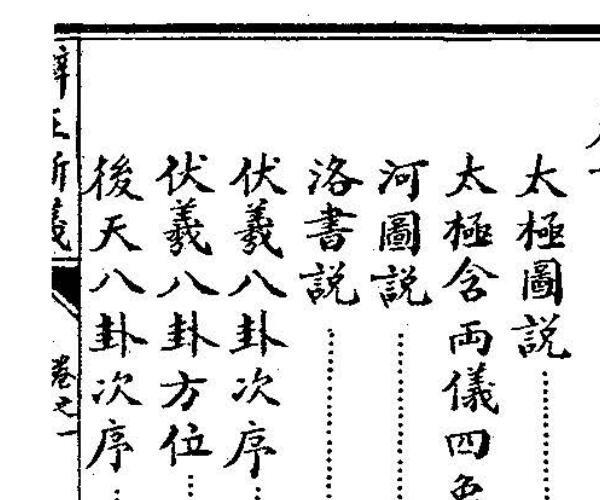 太極圖說
太極含両儀四
河圖說
洛書說
伏羲八卦次序
伏羲八卦方位
後天八卦次序
辨正新義
卷之一